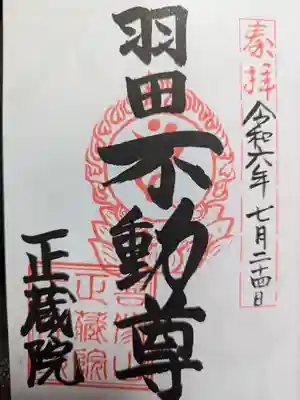 奉拝
令和六年 七月二十四日
羽田不動尊
正蔵院